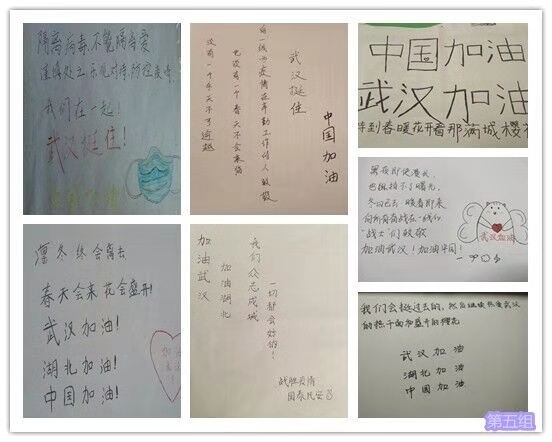 隔离病毒,不能隔离爱
我们在一起!
武汉挺住!
武汉挺住
中国加油
向一线的疫情在辛勤工作的人致敬
也没有一个春天不会来临
没有一个冬天不可逾越
中国加油
武汉加油
等到春暖花开看那满城樱花
黑夜即使漫长,
也阻挡不了曙光,
冬的已去 暖春即来
向所有奋战在一线的
"战士"们致敬
加油武汉!加油中国!
武汉加油
凛冬终会离去
春天会来花会盛开!
武汉加油!
湖北加油!
中国加油!
加油武汉
加油湖北
我们众志成城
一切都会好的!
战胜疫情
国泰民安
我们会挺过去的,然后继续热爱武汉
的热干面和盛开的樱花
武汉加油
湖北加油
中国加油
第五组